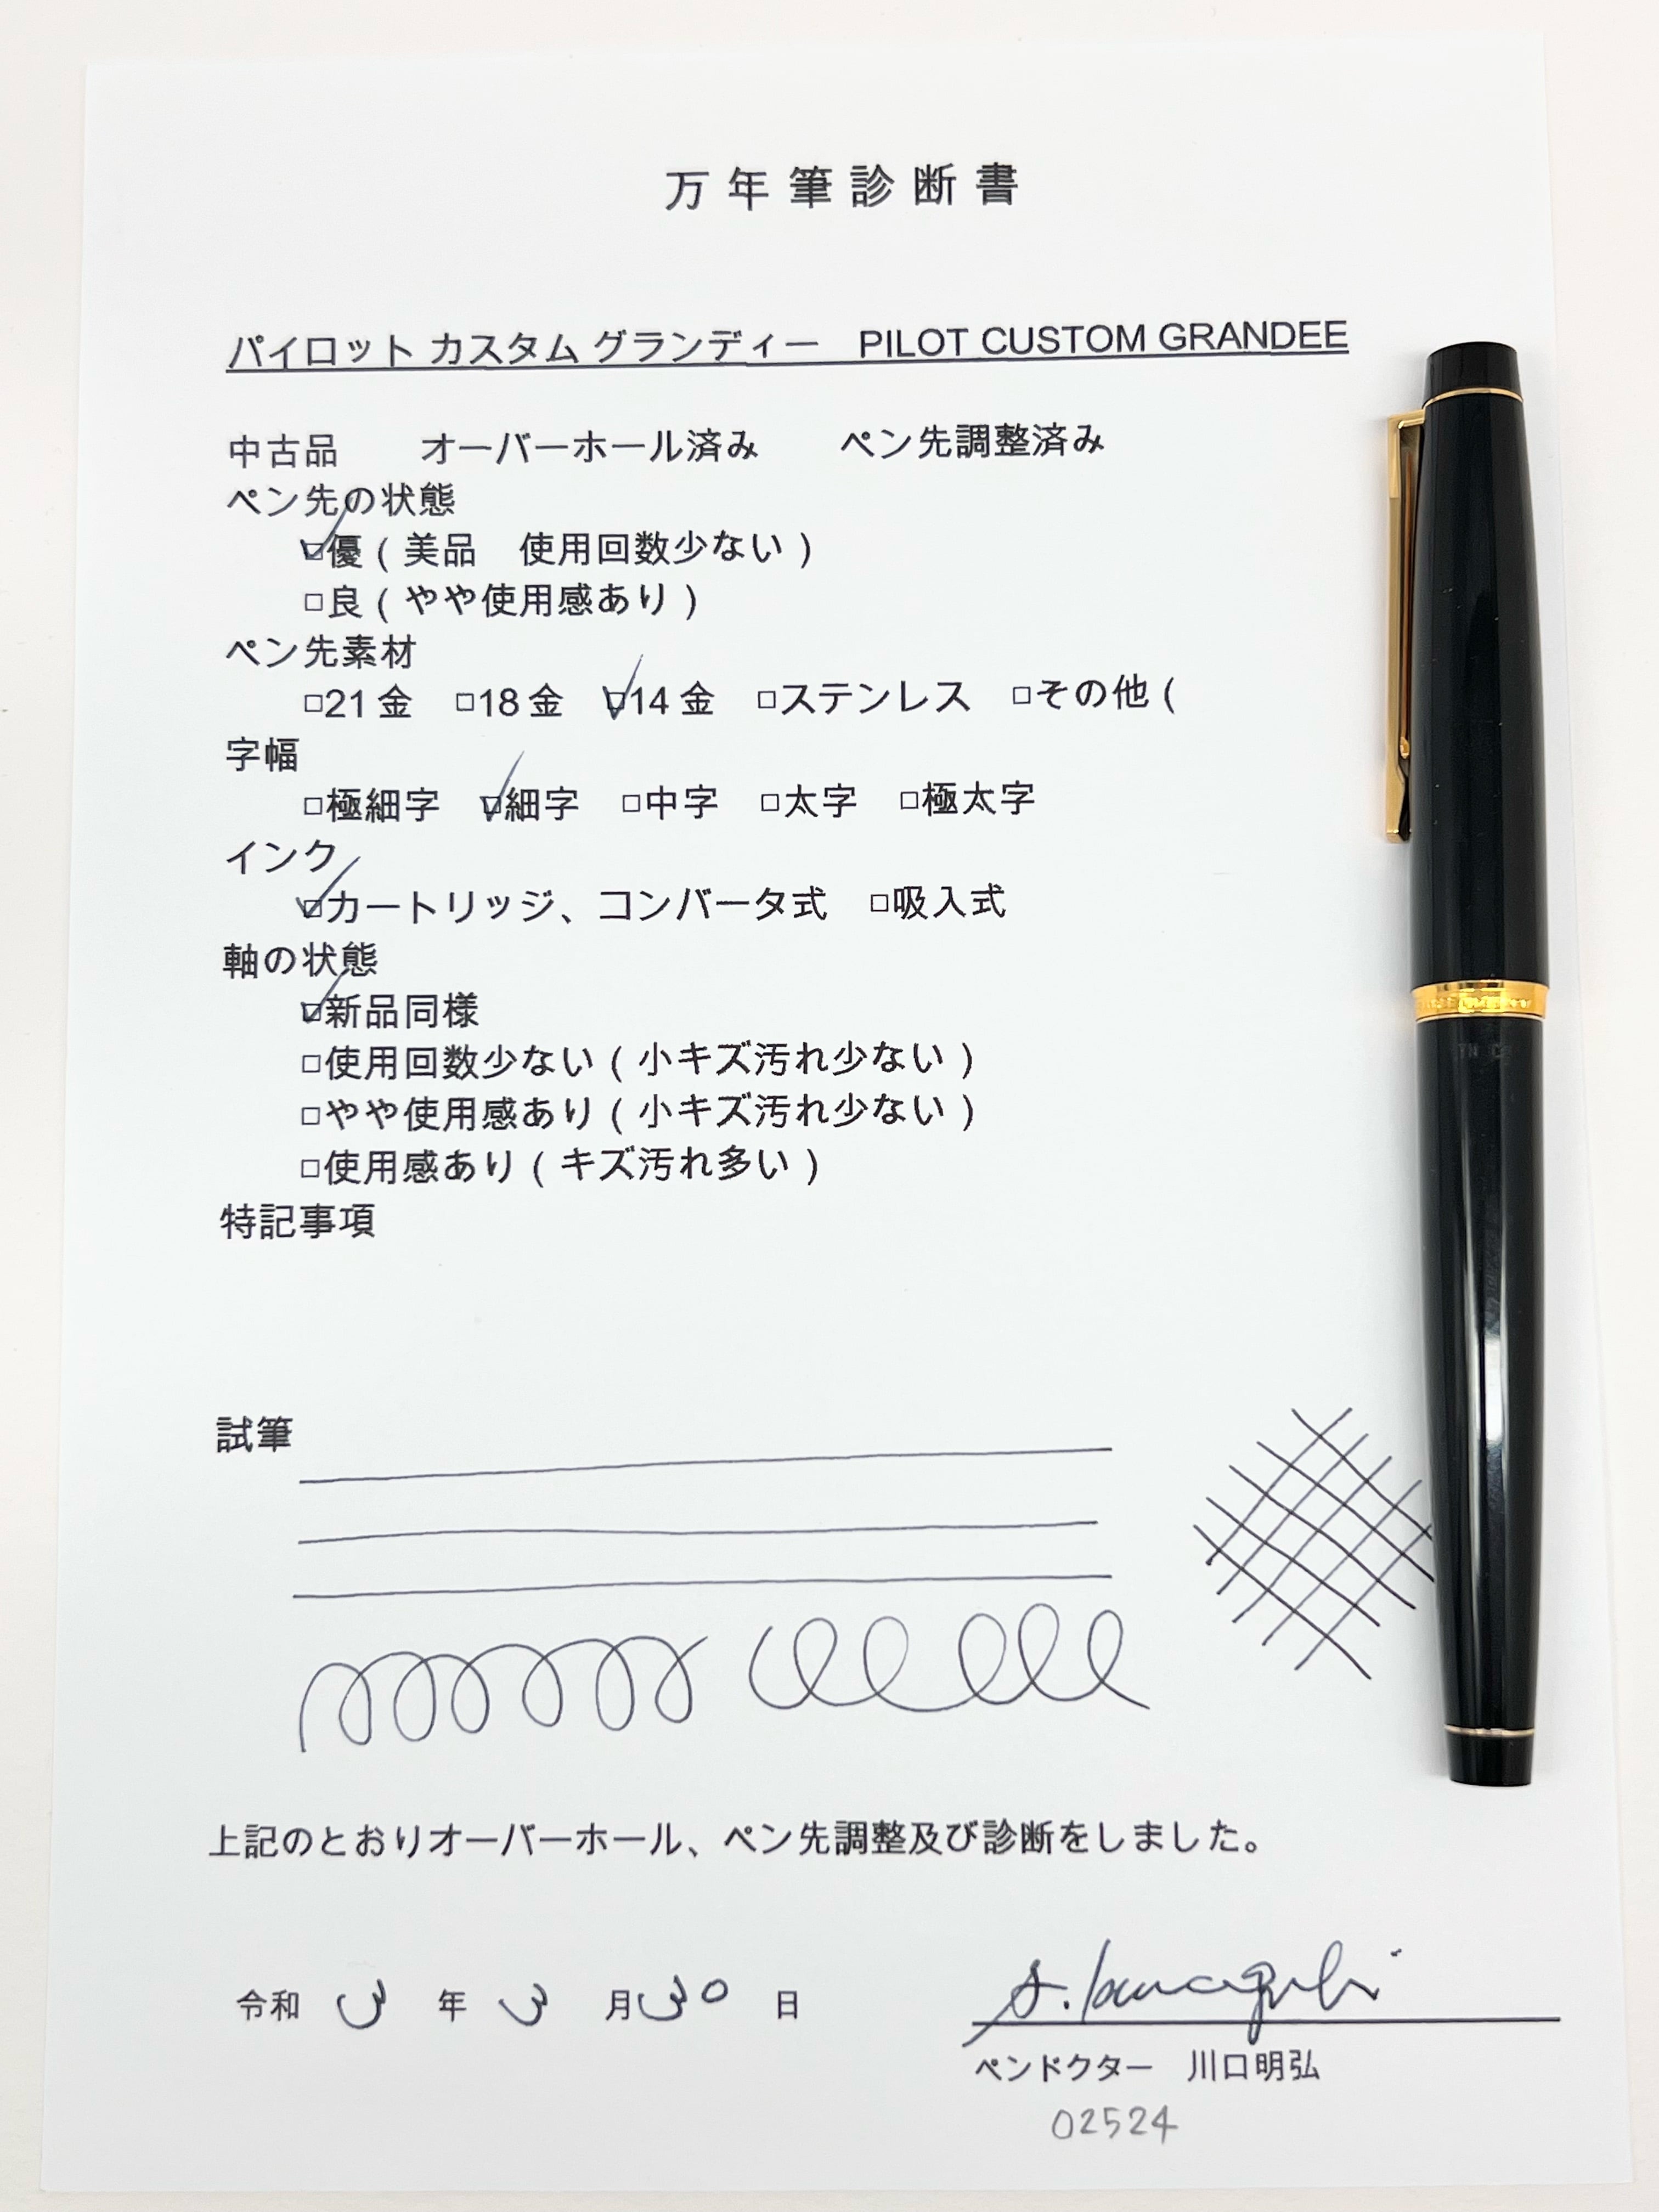 万年筆診断書
パイロット カスタム グランディー　PILOT CUSTOM GRANDEE
中古品　　オーバーホール済み　　ペン先調整済み
ペン先の状態
☑優（美品　使用回数少ない）
□良（やや使用感あり）
ペン先素材
□21金　□18金　☑14金　□ステンレス　□その他（
字幅
□極細字　☑細字　□中字　□太字　□極太字
インク
☑カートリッジ、コンバータ式　□吸入式
軸の状態
☑新品同様
□使用回数少ない（小キズ汚れ少ない）
□やや使用感あり（小キズ汚れ少ない）
□使用感あり（キズ汚れ多い）
特記事項
試筆
上記のとおりオーバーホール、ペン先調整及び診断をしました。
令和 3 年 3 月 30 日
ペンドクター　川口明弘
02524